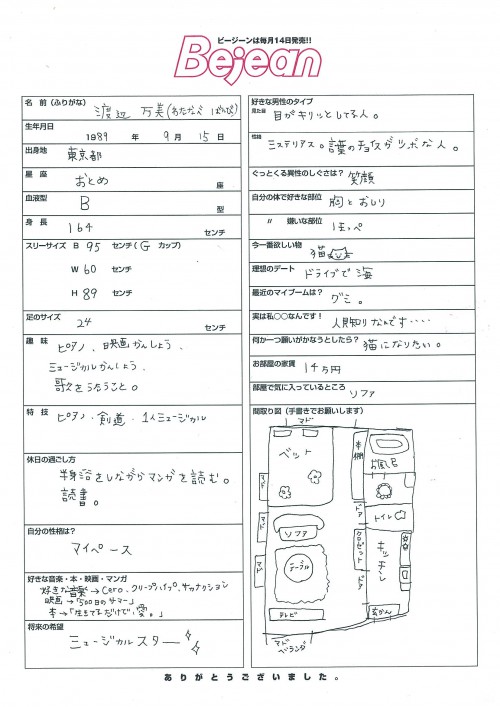 ビージーンは毎月14日発売!!
Bejean
名 前 (ふりがな) 渡辺 万美(わたなべ ばんび)
生年月日
1989 年 9 月 15 日
出身地
東京都
星 座
おとめ 座
血液型
B 型
身 長
164 センチ
スリーサイズ B 95 センチ ( G カップ)
W 60 センチ
H 89 センチ
足のサイズ
24 センチ
趣 味
ピアノ、映画かんしょう、
ミュージカルかんしょう、
歌をうたうこと。
特 技
ピアノ・剣道・1人ミュージカル
休日の過ごし方
半身浴をしながらマンガを読む。
読書。
自分の性格は?
マイペース
好きな音楽・本・映画・マンガ
好きな音楽→Cero、クリープハイプ、サカナクション
映画→「500日のサマー」
本→「生きてるだけで、愛。」
将来の希望
ミュージカルスター
好きな男性のタイプ
見た目 目がキリッとしてる人。
性格
ミステリアス。言葉のチョイスがツボな人。
ぐっとくる異性のしぐさは? 笑顔
自分の体で好きな部位 胸とおしり
〃 嫌いな部位 ほっぺ
今一番欲しい物 猫
理想のデート ドライブで海
最近のマイブームは? グミ。
実は私○○なんです! 人見知りなんです····
何か一つ願いがかなうとしたら? 猫になりたい。
お部屋の家賃 14万円
部屋で気に入っているところ
ソファ
間取り図 (手書きでお願いします)
マド
ベット
本棚
お風呂
マド
ドア
トイレ
マド
ソファ
クロゼット
キッチン
マド
テーブル
ドア
テレビ
玄かん
マド
ベランダ
ありがとうございました。